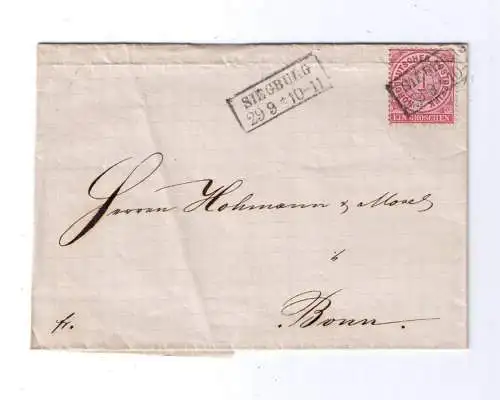 SIEGBURG
29 9 * 10-11
NORDDEUTSCHER POSTBEZIRK
EIN GROSCHEN
Herren Hohmann & Morel
Bonn.
fr.